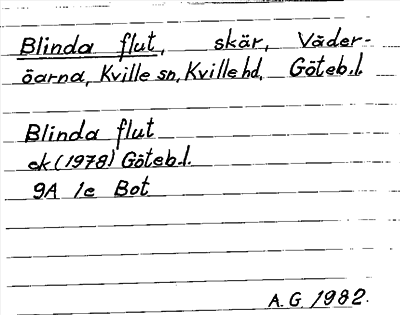 Blinda flut, skär, Väder-
öarna, Kville sn, Kville hd, Göteb.l.
Blinda flut
ek (1978) Göteb.l.
9A 1e Bot
A.G. 1982.